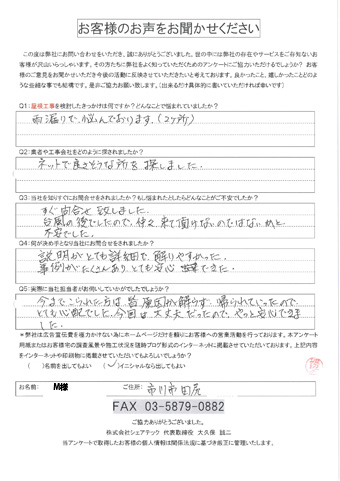 お客様のお声をお聞かせください
この度は弊社にお問い合わせをいただき、誠にありがとうございました。世の中には弊社の存在やサービスをご存知ないお
客様が沢山いらっしゃいます。その方たちに弊社をよく知っていただくためのアンケートにご協力いただけるでしょうか？お客
様のご意見をお聞かせいただき今後の活動に反映させていただきたいと考えております。良かったこと、嬉しかったことどのよ
うな些細な事でも結構です。是非ご協力お願い致します。（出来るだけ具体的に書いていただければ幸いです）
Q1：屋根工事を検討したきっかけは何ですか？どんなことで悩まれていましたか？
雨漏りで、悩んでおります。(2ヶ所)
Q2：業者や工事会社をどのように探されましたか？
ネットで良さそうな所を探しました。
Q3：当社を知りすぐにお問合せをされましたか？もし悩まれたとしたらどんなことがご不安でしたか？
すぐ問合せ致しました。
台風の後でしたので、 来て頂けないのではないかと
不安でした。
Q4：何が決め手となり当社にお問合せをされましたか？
説明がとても詳細で、解りやすかった。
事例がたくさんあり、とても安心 出来ました。
Q5：実際に当社担当者がお伺いしていかがでしたでしょうか？
今までこられた方は、皆原因が解らず、帰られていったので
とても心配でした。今回は、大丈夫だったので、やっと安心できま
した。
＊弊社は広告宣伝費を極力かけない為にホームページだけを頼りにお客様への営業活動を行っております。本アンケート
用紙またはお客様宅の調査風景や施工状況を随時ブログ形式のインターネットに掲載させていただいております。上記内容
をインターネットや印刷物に掲載させていただいてもよろしいでしょうか？
（ ）名前を出してもよい （✓）イニシャルなら出してもよい
お名前： M様 ご住所： 市川市田尻
FAX 03-5879-0882
ご協力ありがとうございました。
株式会社シェアテック 代表取締役 大久保 誠二
当アンケートで取得したお客様の個人情報は関係法規に基づき厳正に管理いたします。